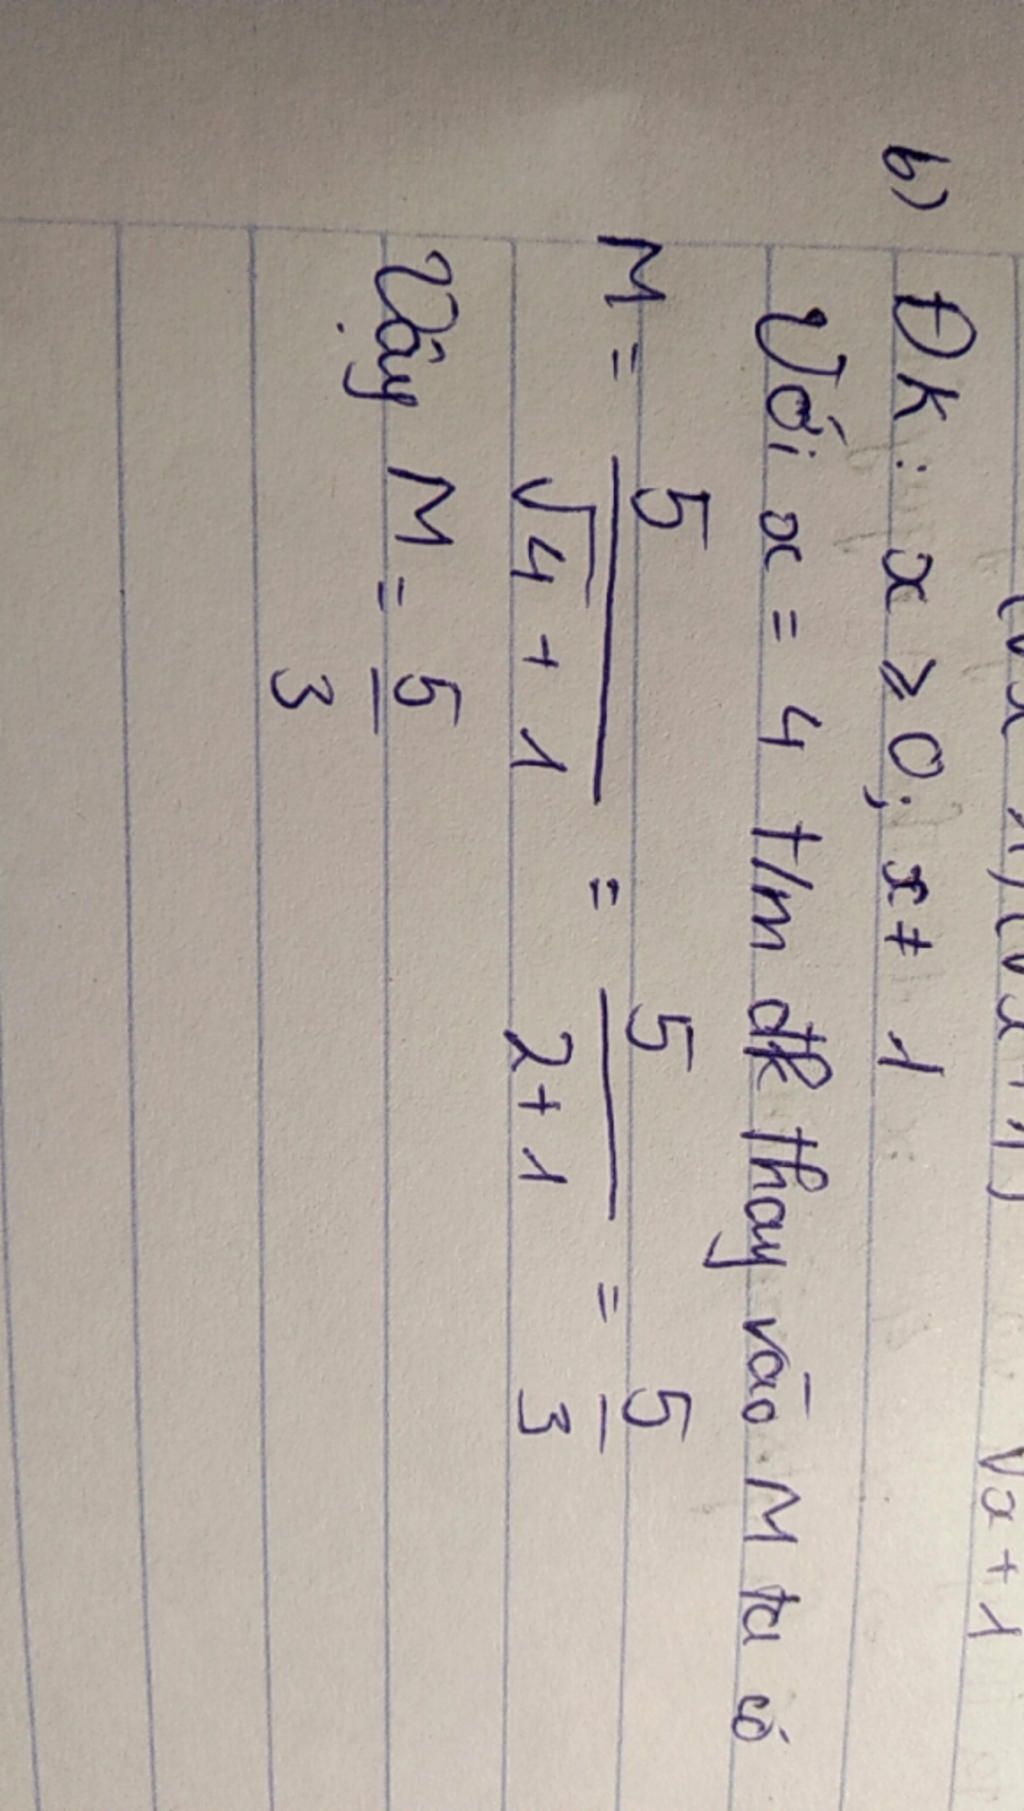 (√x - 1)(√x + 1) √x + 1
b) ĐK: x ≥ 0; x ≠ 1
Với x = 4 t/m đk thay vào M ta có
M = 5/(√4 + 1) = 5/(2+1) = 5/3
Vậy M = 5/3